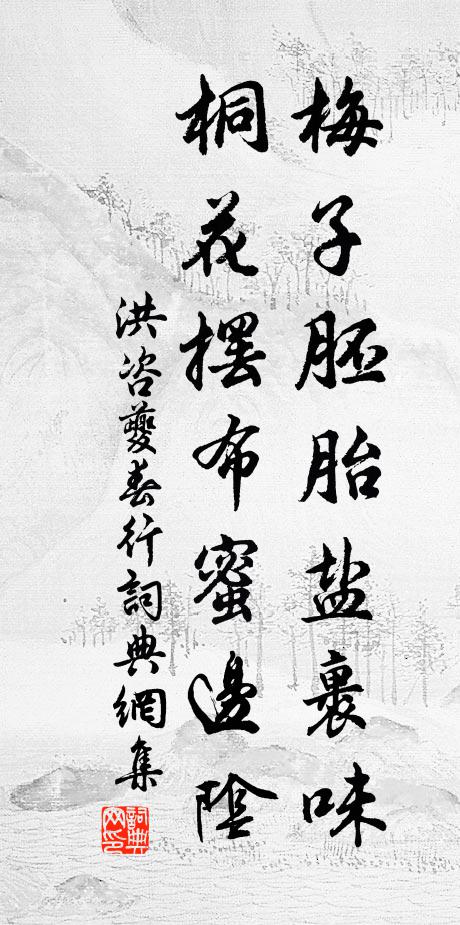 梅子胚胎盐裹味
桐花摆布蜜邊陰
洪咨夔春行詞典網集
詞典网印